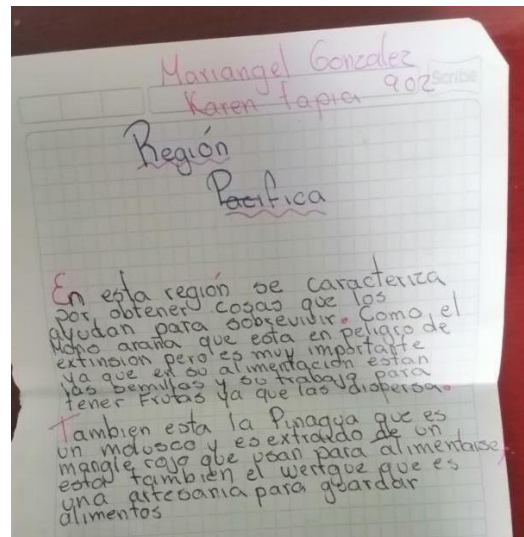 Mariangel Gonzalez
Karen tapia 902
Scribe
Región
Pacifica
En esta región se caracteriza
por obtener cosas que los
ayudan para sobrevivir. Como el
Mono araña que esta en peligro de
extinsion pero es muy importante
ya que en su alimentación estan
las semillas y su trabajo para
tener Frutas ya que las dispersa.
Tambien esta la Pinagua que es
un molusco y es extraido de un
mangle rojo que usan para alimentarse,
esta tambien el wertgue que es
una artesania para guardar
alimentos